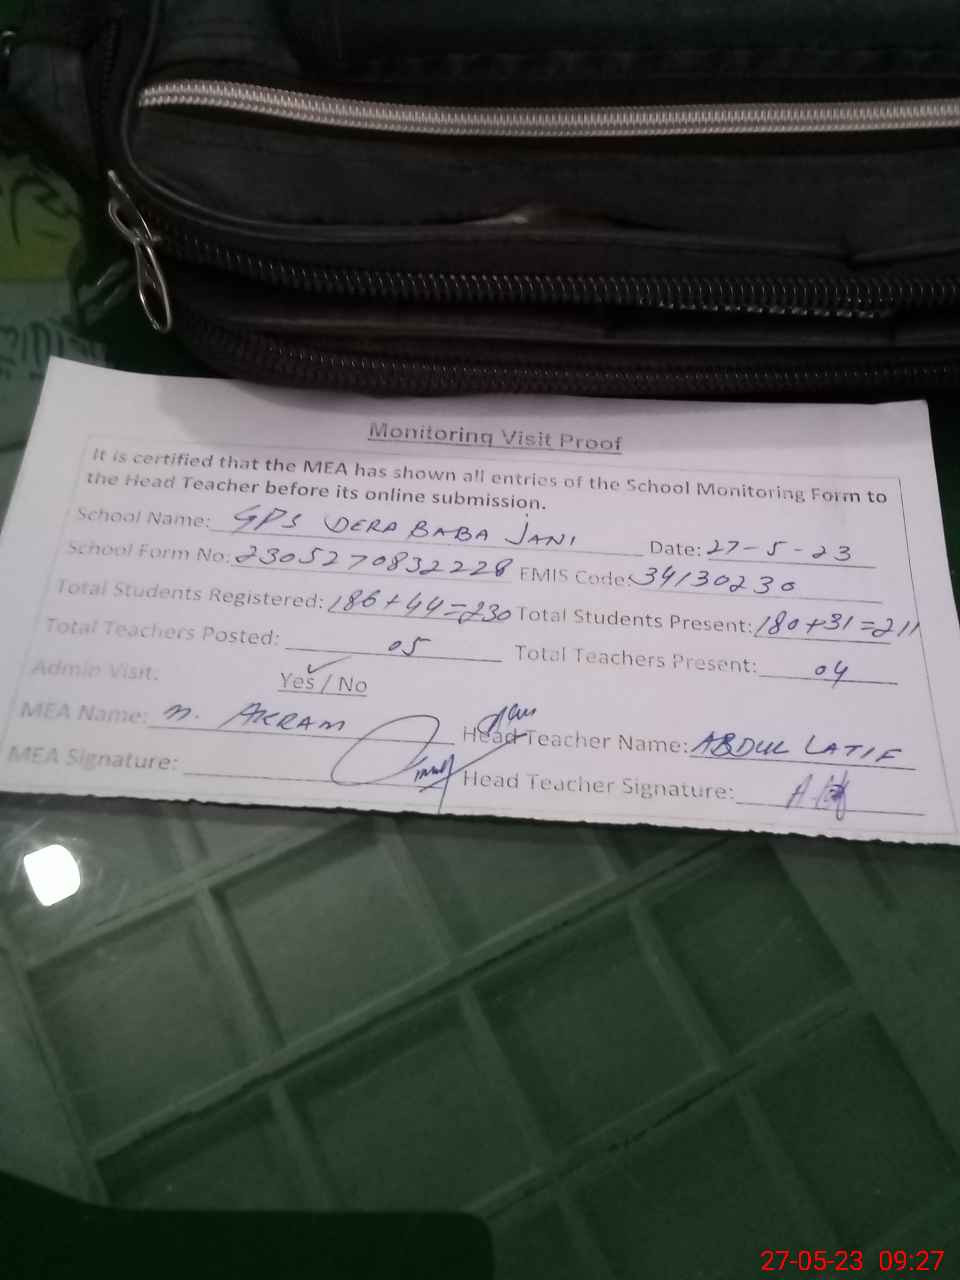 Monitoring Visit Proof
It is certified that the MEA has shown all entries of the School Monitoring Form to
the Head Teacher before its online submission.
School Name: GPS DERA BABA JANI Date: 27-5-23
School Form No: 2305270832228 EMIS Code: 34130230
Total Students Registered: 186+44=230 Total Students Present: 180+31=211
Total Teachers Posted: 05 Total Teachers Present: 04
Admin Visit: Yes / No
MEA Name: M. AKRAM Head Teacher Name: ABDUL LATIF
MEA Signature: Head Teacher Signature:
27-05-23 09:27